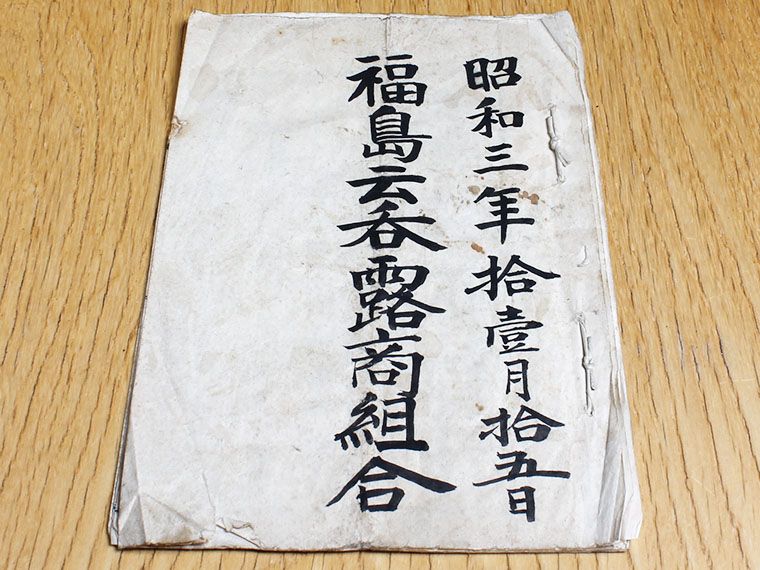 昭和三年拾壹月拾五日
福島云呑露商組合